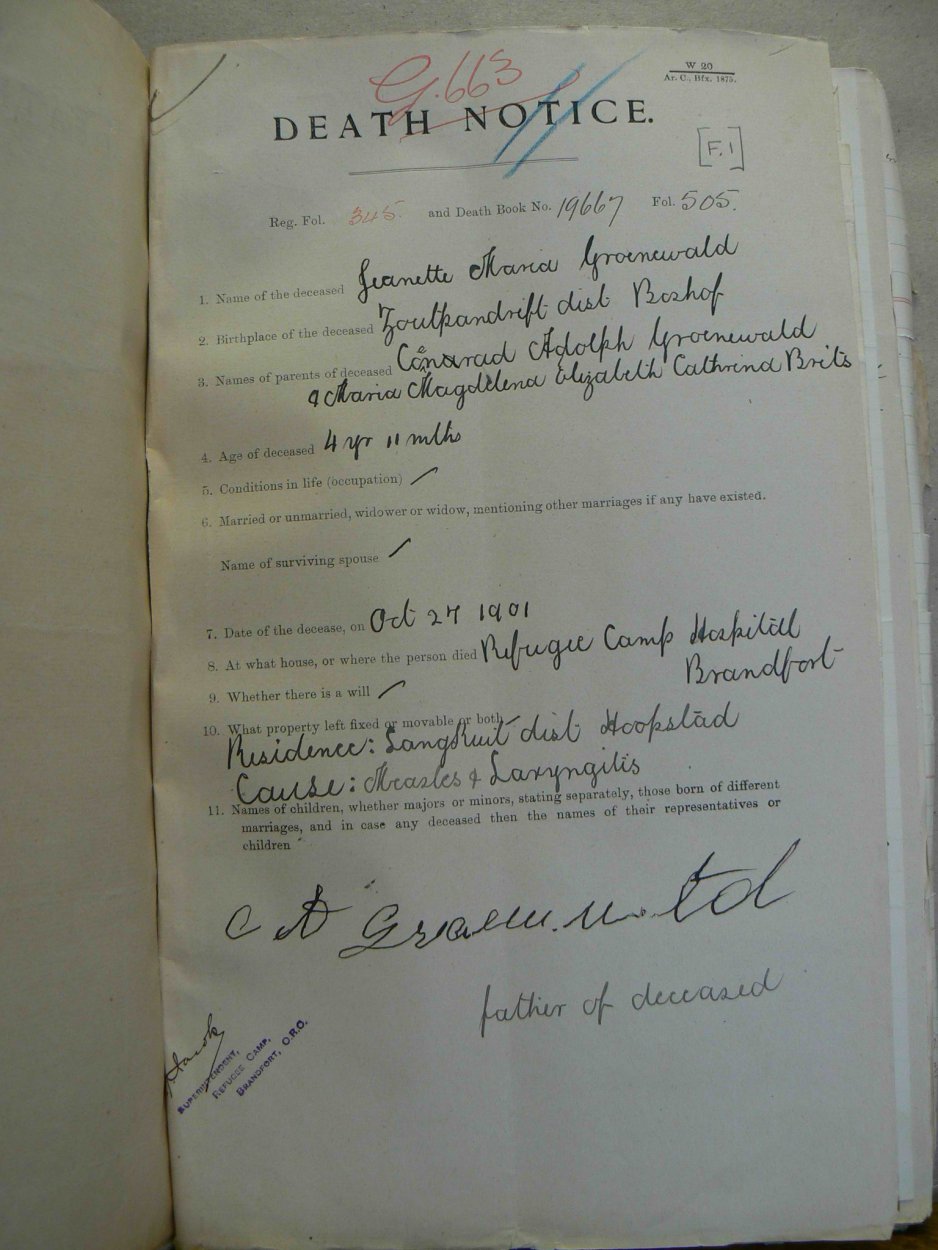 G.663
W 20
Ar. C., Bfx. 1875.
DEATH NOTICE.
[F.1]
Reg. Fol. 345. and Death Book No. 19667 Fol. 505.
1. Name of the deceased Jeanette Maria Groenewald
2. Birthplace of the deceased Zoutpandrift dist Boshof
3. Names of parents of deceased Conarad Adolph Groenewald
& Maria Magdelena Elizabeth Cathrina Brits
4. Age of deceased 4 yr 11 mths
5. Conditions in life (occupation)
6. Married or unmarried, widower or widow, mentioning other marriages if any have existed.
Name of surviving spouse
7. Date of the decease, on Oct 27 1901
8. At what house, or where the person died Refugee Camp Hospitall
Brandfort
9. Whether there is a will
10. What property left fixed or movable or both
Residence: LangKuit dist Hoopstad
Cause: Measles & Laryngitis
11. Names of children, whether majors or minors, stating separately, those born of different
marriages, and in case any deceased then the names of their representatives or
children
C A
father of deceased
SUPERINTENDENT,
REFUGEE CAMP,
BRANDFORT, O.R.C.